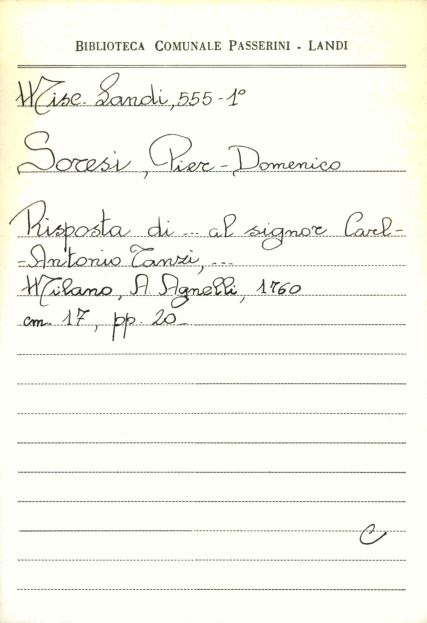 BIBLIOTECA COMUNALE PASSERINI - LANDI
Misc. Landi, 555-1°
Soresi, Pier-Domenico
Risposta di ... al signor Carl-
-Antonio Tanzi, ...
Milano, A. Agnelli, 1760
cm. 17, pp. 20
C